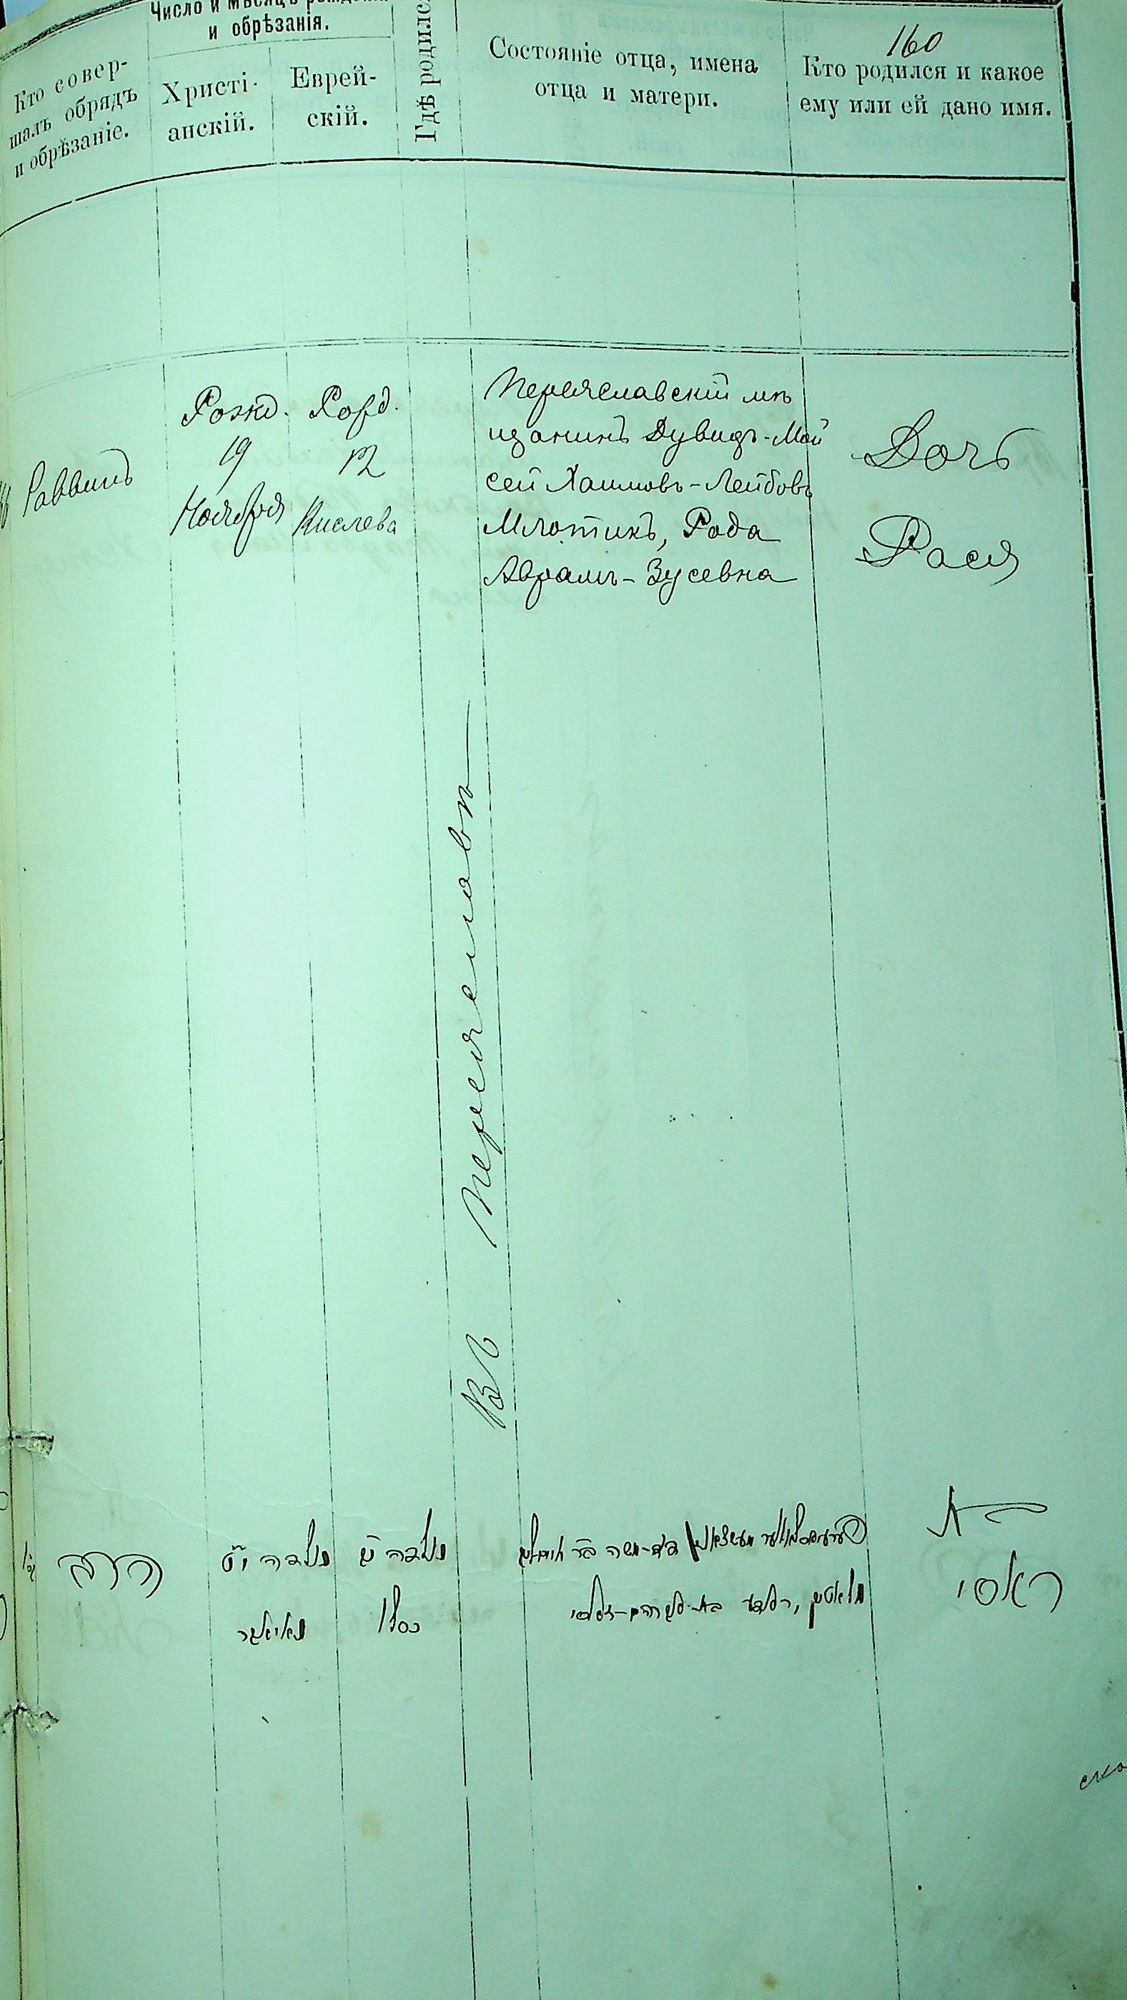 160
Кто совер-
шалъ обрядъ
и обрѣзаніе.
Число и мѣсяцъ рожденія
и обрѣзанія.
Христі-
анскій.
Еврей-
скій.
Гдѣ родился
Состояніе отца, имена
отца и матери.
Кто родился и какое
ему или ей дано имя.
Раввинъ
Рожд.
19
Ноября
Рожд.
12
Кислева
Въ Переяславѣ
Переяславскій мѣ
щанинъ Дувидъ-Мой
сей Хаимовъ-Лейбовъ
Млотикъ, Рода
Абрамъ-Зусевна
Дочь
Рася
הרב
נולדה
נולדה
כסלו
ראסי